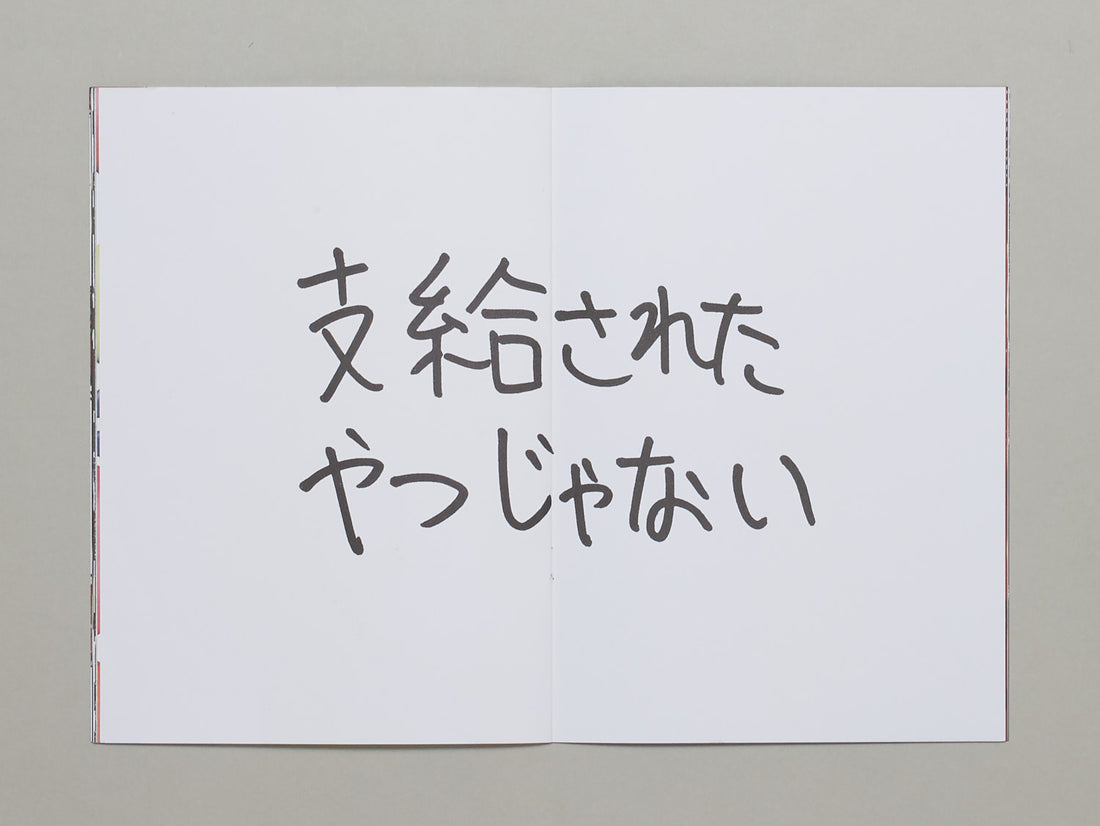 支給された
やつじゃない